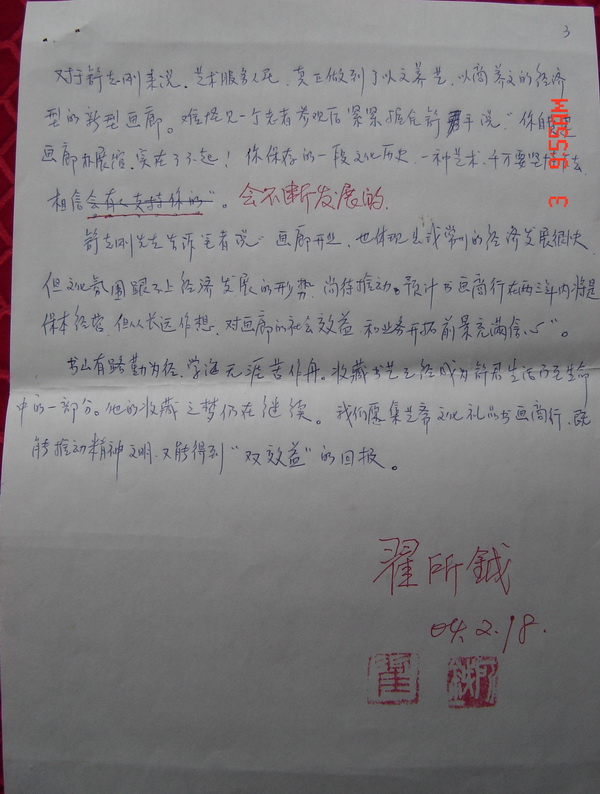 3
对于舒志刚来说，艺术服务人民，真正做到了以文养艺，以商养文的经济
型的新型画廊。难怪见一个老者参观后紧紧握住舒君手说“你自己
画廊办展馆，实在了不起！你保存的一段文化历史，一种艺术，千万要坚持下去，
相信会有人支持你的”。会不断发展的.
舒志刚先生告诉笔者说“画廊开业，也体现出我常州的经济发展很快，
但文化氛围跟不上经济发展的形势，尚待推动。预计书画商行在两三年内将是
保本经营，但从长远作想，对画廊的社会效益和业务开拓前景充满信心”。
书山有路勤为径，学海无涯苦作舟。收藏书艺已经成为舒君生活乃至生命
中的一部分。他的收藏之梦仍在继续。我们愿集艺斋文化礼品书画商行，既
能推动精神文明，又能得到“双效益”的回报。
翟所钺
04.2.18.
3 9:55AM